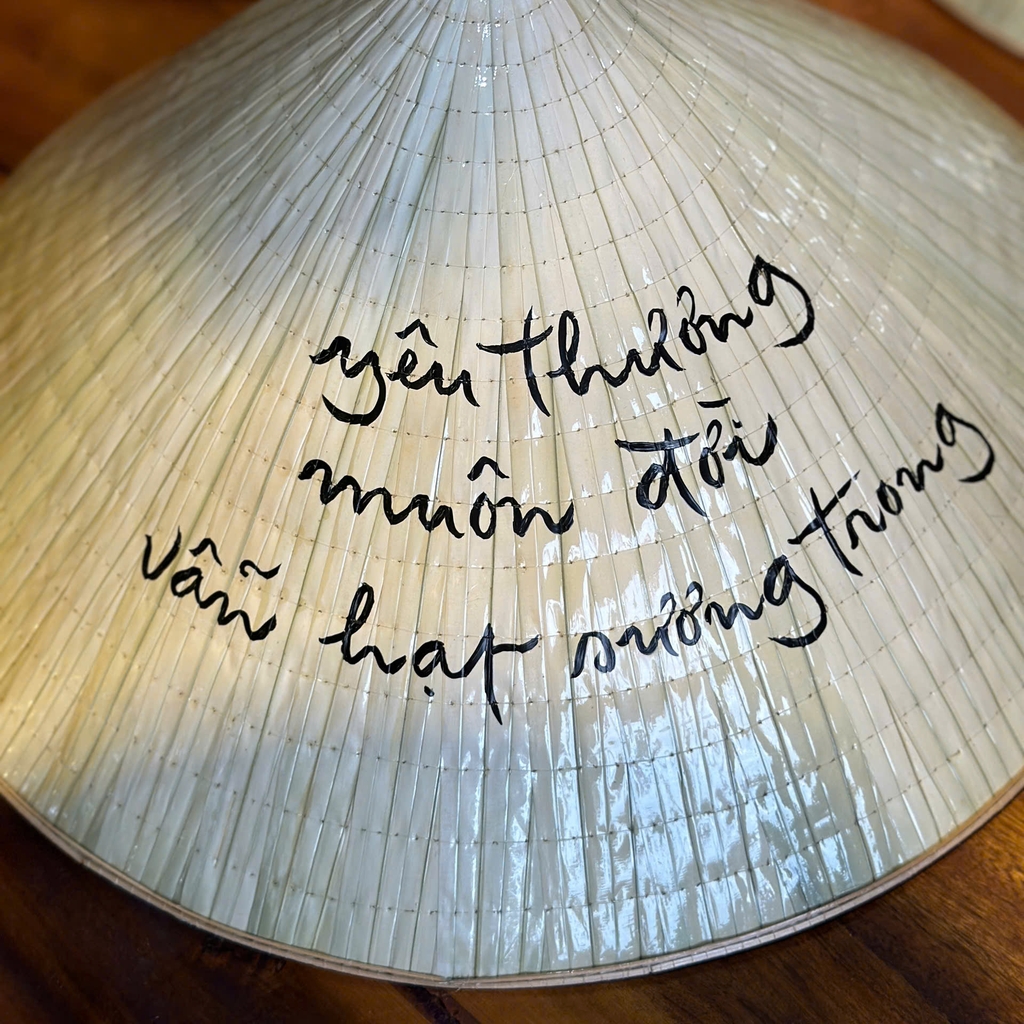 yêu thương
muôn đời
vẫn hạt sương trong